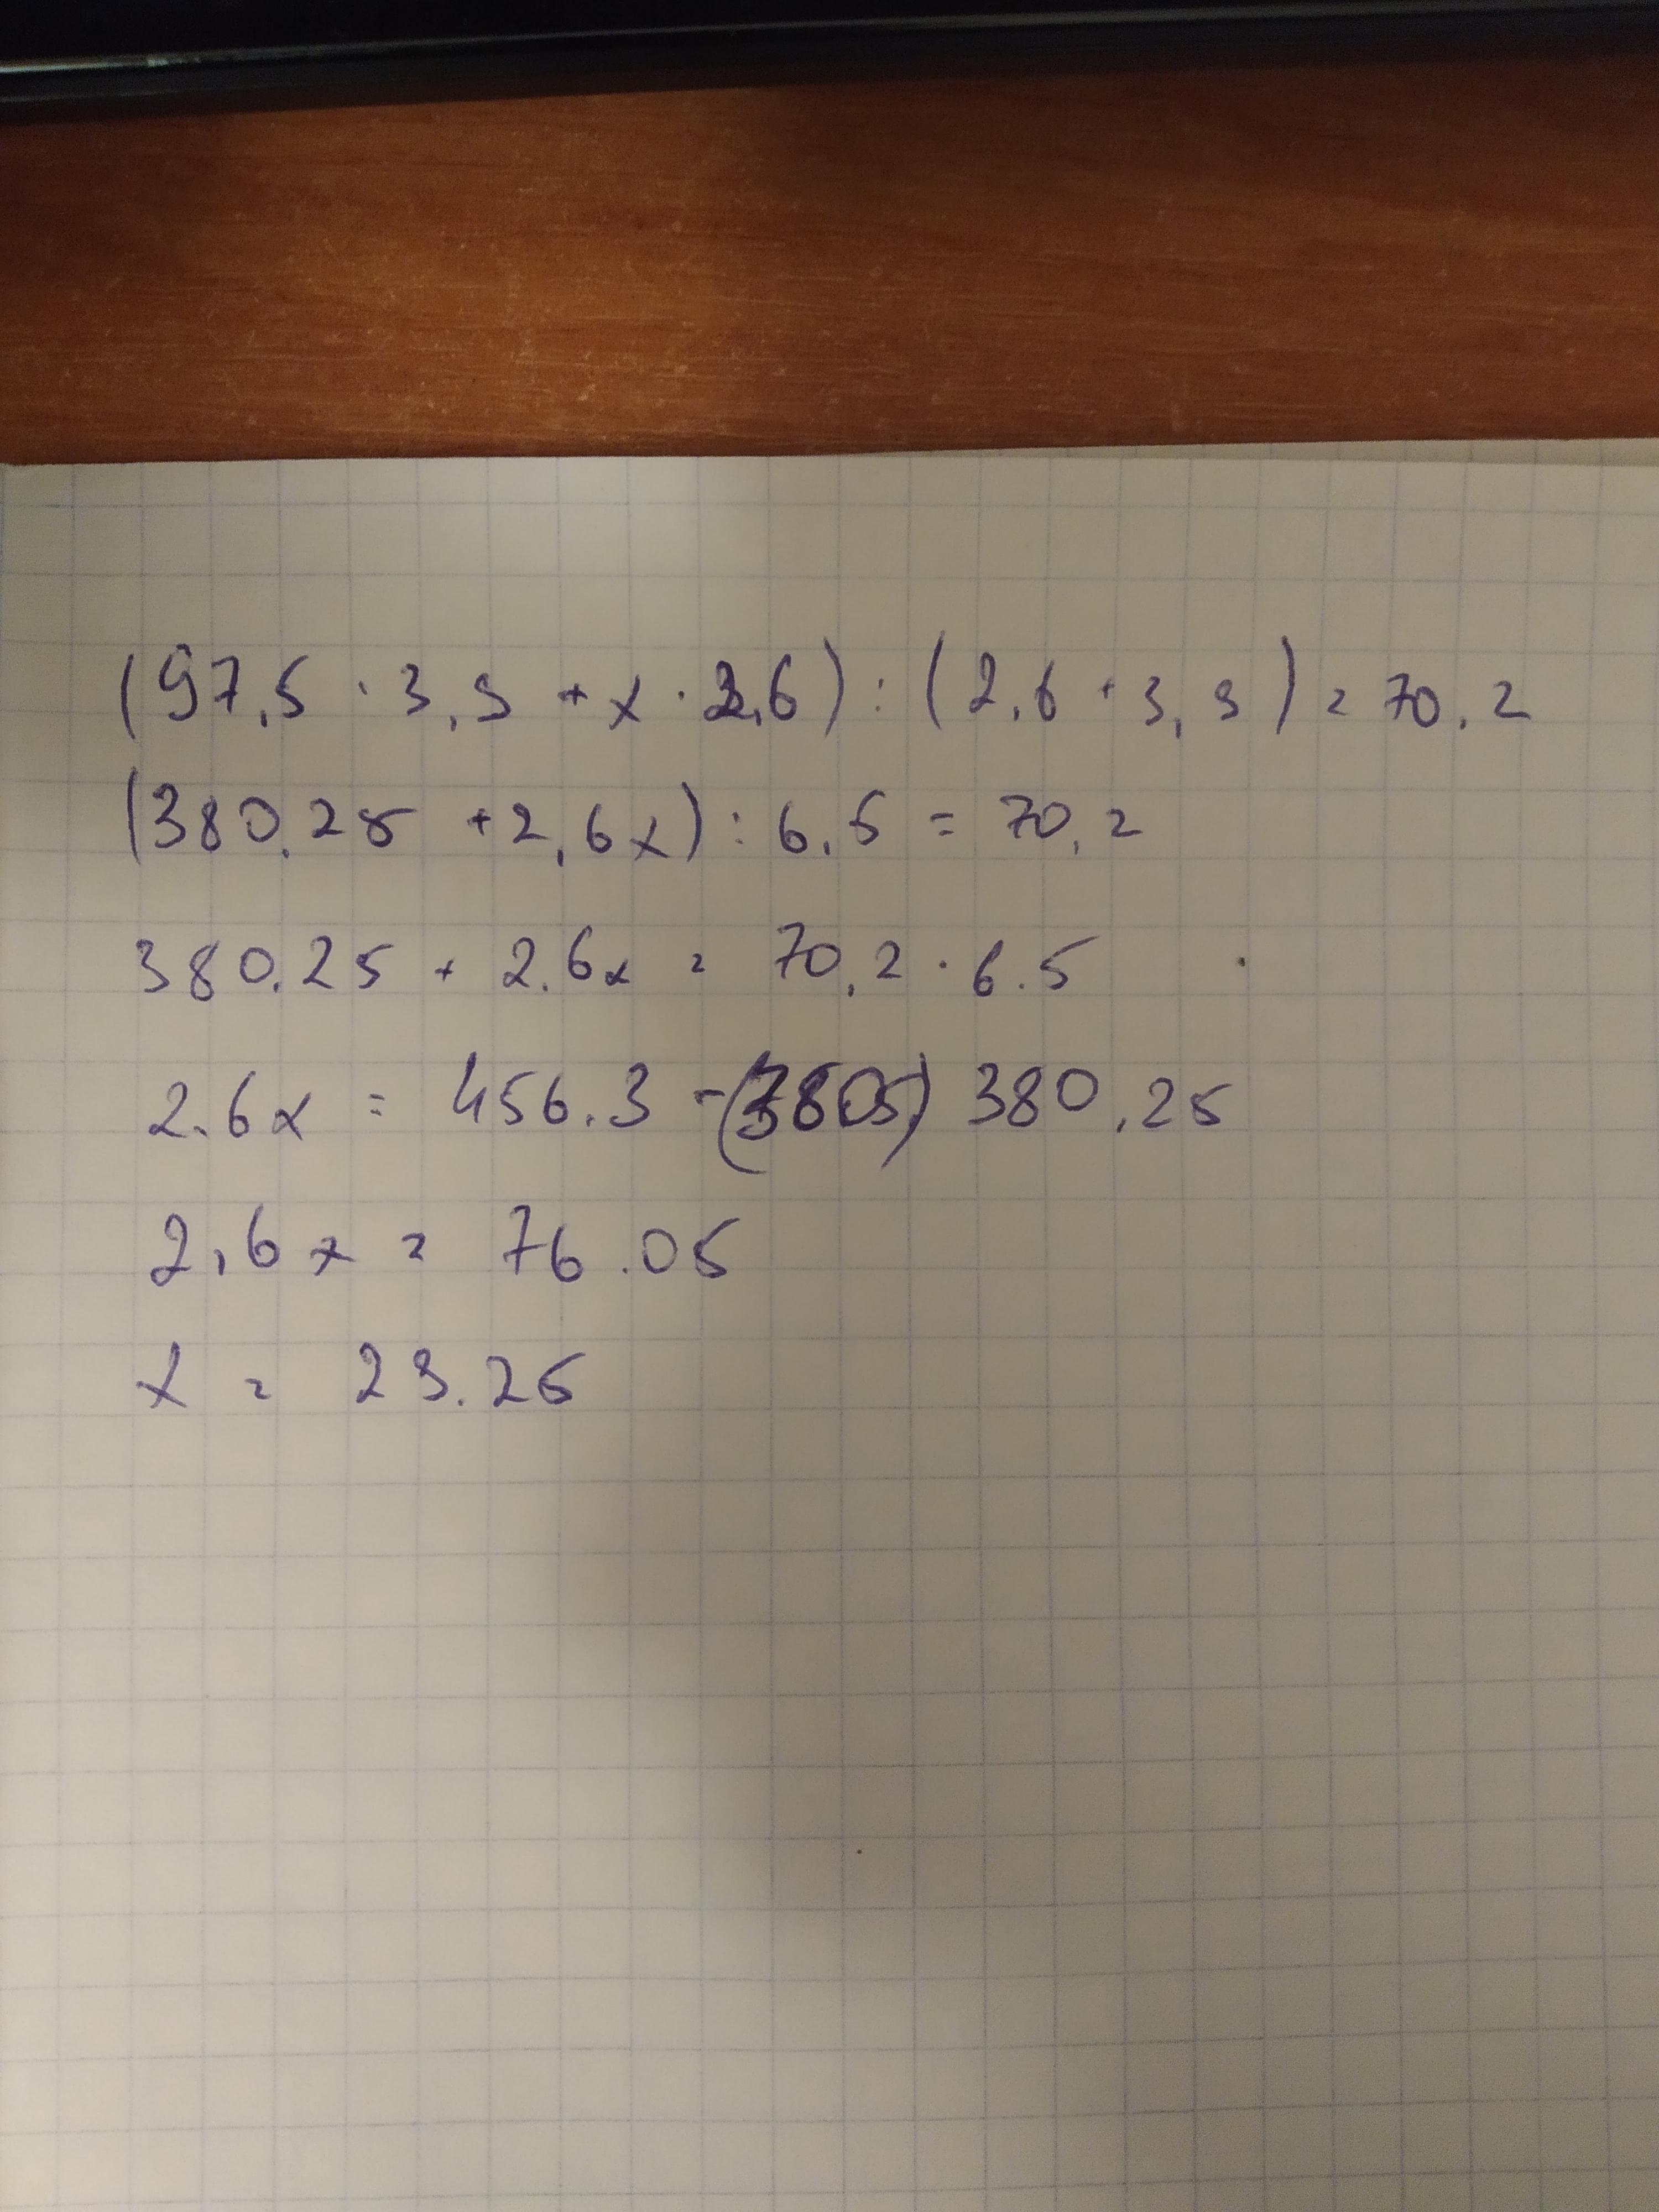 (97,5 · 3,9 + x · 2,6) : (2,6 + 3,9) = 70,2
(380,25 + 2,6x) : 6,5 = 70,2
380.25 + 2.6x = 70,2 · 6.5
2.6x = 456.3 - 380,25
2,6x = 76.05
x = 29.25